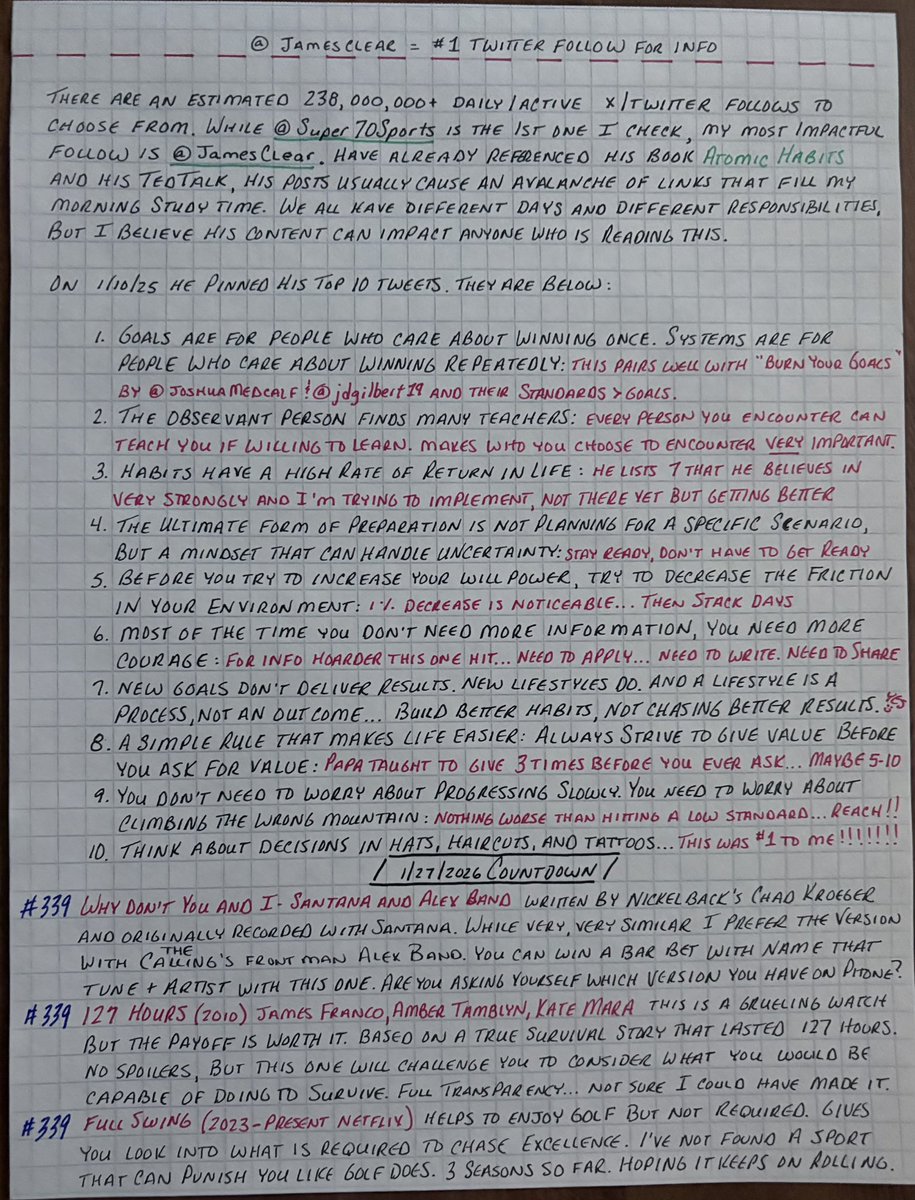 @ JAMESCLEAR = #1 TWITTER FOLLOW FOR INFO
THERE ARE AN ESTIMATED 238,000,000+ DAILY/ACTIVE X/TWITTER FOLLOWS TO
CHOOSE FROM. WHILE @Super70Sports IS THE 1ST ONE I CHECK, MY MOST IMPACTFUL
FOLLOW IS @JamesClear. HAVE ALREADY REFERENCED HIS BOOK ATOMIC HABITS
AND HIS TEDTALK, HIS POSTS USUALLY CAUSE AN AVALANCHE OF LINKS THAT FILL MY
MORNING STUDY TIME. WE ALL HAVE DIFFERENT DAYS AND DIFFERENT RESPONSIBILITIES,
BUT I BELIEVE HIS CONTENT CAN IMPACT ANYONE WHO IS READING THIS.
ON 1/10/25 HE PINNED HIS TOP 10 TWEETS. THEY ARE BELOW:
1. GOALS ARE FOR PEOPLE WHO CARE ABOUT WINNING ONCE. SYSTEMS ARE FOR
PEOPLE WHO CARE ABOUT WINNING REPEATEDLY: THIS PAIRS WELL WITH "BURN YOUR GOALS"
BY @JOSHUAMEDCALF & @jdgilbert19 AND THEIR STANDARDS > GOALS.
2. THE OBSERVANT PERSON FINDS MANY TEACHERS: EVERY PERSON YOU ENCOUNTER CAN
TEACH YOU IF WILLING TO LEARN. MAKES WHO YOU CHOOSE TO ENCOUNTER VERY IMPORTANT.
3. HABITS HAVE A HIGH RATE OF RETURN IN LIFE: HE LISTS 7 THAT HE BELIEVES IN
VERY STRONGLY AND I'M TRYING TO IMPLEMENT, NOT THERE YET BUT GETTING BETTER
4. THE ULTIMATE FORM OF PREPARATION IS NOT PLANNING FOR A SPECIFIC SCENARIO,
BUT A MINDSET THAT CAN HANDLE UNCERTAINTY: STAY READY, DON'T HAVE TO GET READY
5. BEFORE YOU TRY TO INCREASE YOUR WILL POWER, TRY TO DECREASE THE FRICTION
IN YOUR ENVIRONMENT: 1% DECREASE IS NOTICEABLE... THEN STACK DAYS
6. MOST OF THE TIME YOU DON'T NEED MORE INFORMATION, YOU NEED MORE
COURAGE: FOR INFO HOARDER THIS ONE HIT... NEED TO APPLY... NEED TO WRITE. NEED TO SHARE
7. NEW GOALS DON'T DELIVER RESULTS. NEW LIFESTYLES DO. AND A LIFESTYLE IS A
PROCESS, NOT AN OUTCOME... BUILD BETTER HABITS, NOT CHASING BETTER RESULTS.
8. A SIMPLE RULE THAT MAKES LIFE EASIER: ALWAYS STRIVE TO GIVE VALUE BEFORE
YOU ASK FOR VALUE: PAPA TAUGHT TO GIVE 3 TIMES BEFORE YOU EVER ASK... MAYBE 5-10
9. YOU DON'T NEED TO WORRY ABOUT PROGRESSING SLOWLY. YOU NEED TO WORRY ABOUT
CLIMBING THE WRONG MOUNTAIN: NOTHING WORSE THAN HITTING A LOW STANDARD... REACH!!
10. THINK ABOUT DECISIONS IN HATS, HAIRCUTS, AND TATTOOS... THIS WAS #1 TO ME!!!!!!!
/ 1/27/2026 COUNTDOWN /
#339 WHY DON'T YOU AND I - SANTANA AND ALEX BAND WRITTEN BY NICKELBACK'S CHAD KROEGER
AND ORIGINALLY RECORDED WITH SANTANA. WHILE VERY, VERY SIMILAR I PREFER THE VERSION
WITH THE CALLING'S FRONT MAN ALEX BAND. YOU CAN WIN A BAR BET WITH NAME THAT
TUNE + ARTIST WITH THIS ONE. ARE YOU ASKING YOURSELF WHICH VERSION YOU HAVE ON PHONE?
#339 127 HOURS (2010) JAMES FRANCO, AMBER TAMBLYN, KATE MARA THIS IS A GRUELING WATCH
BUT THE PAYOFF IS WORTH IT. BASED ON A TRUE SURVIVAL STORY THAT LASTED 127 HOURS.
NO SPOILERS, BUT THIS ONE WILL CHALLENGE YOU TO CONSIDER WHAT YOU WOULD BE
CAPABLE OF DOING TO SURVIVE. FULL TRANSPARENCY... NOT SURE I COULD HAVE MADE IT.
#339 FULL SWING (2023-PRESENT NETFLIX) HELPS TO ENJOY GOLF BUT NOT REQUIRED. GIVES
YOU LOOK INTO WHAT IS REQUIRED TO CHASE EXCELLENCE. I'VE NOT FOUND A SPORT
THAT CAN PUNISH YOU LIKE GOLF DOES. 3 SEASONS SO FAR. HOPING IT KEEPS ON ROLLING.